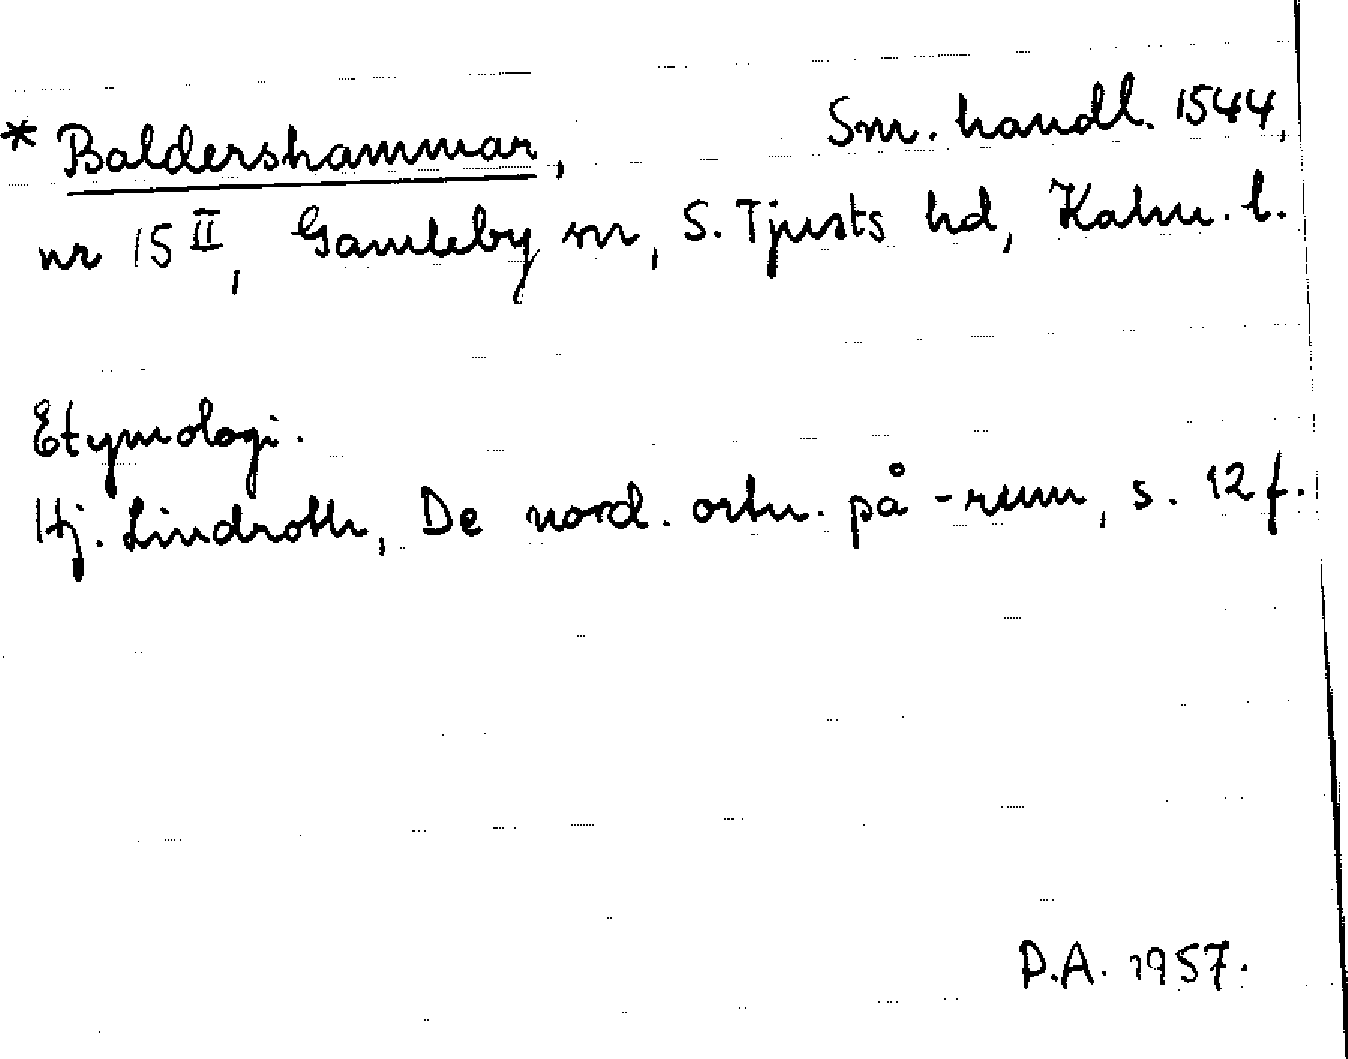 * Baldershammar, Sm. handl. 1544,
nr 15 II, Gamleby sn, S. Tjusts hd, Kalm. l.
Etymologi.
Hj. Lindroth, De nord. ortn. på -rum, s. 12 f.
D.A. 1957.